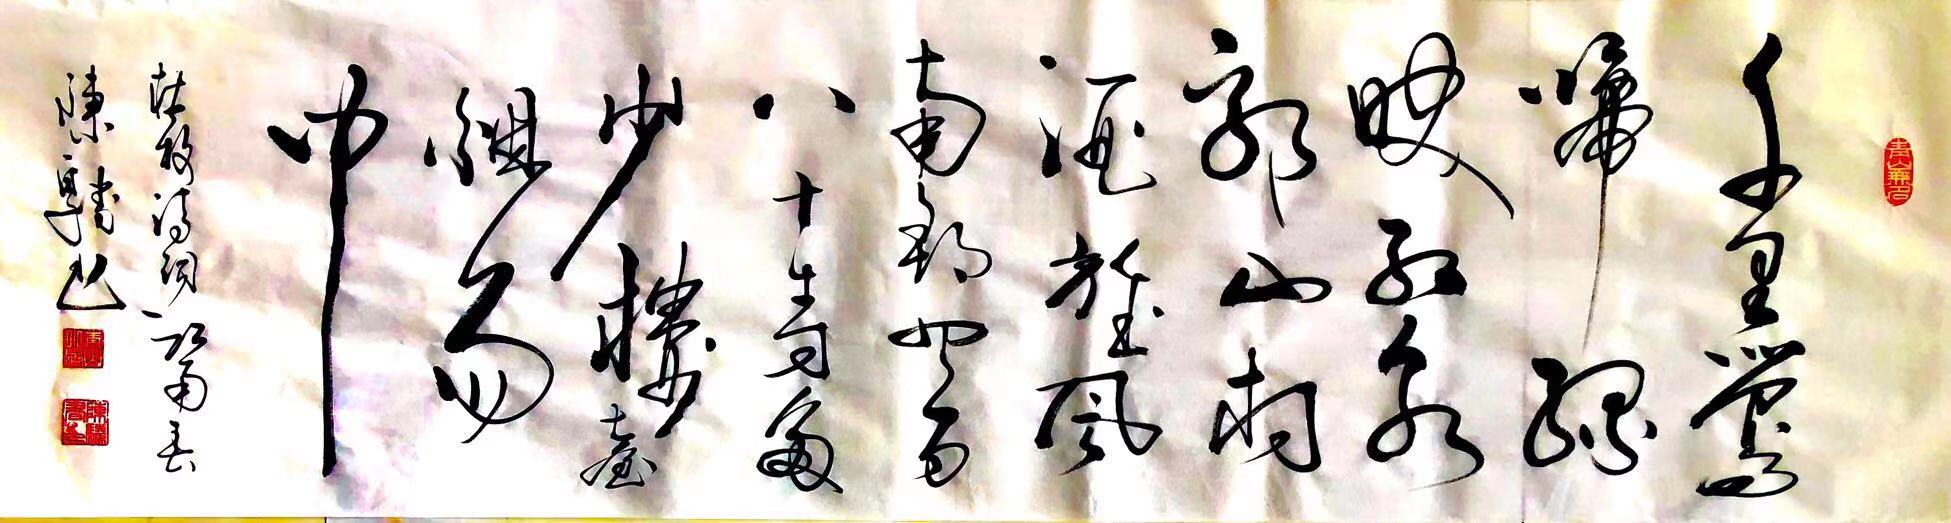 千里鶯
啼綠
映紅水
郭山村
酒旗風
南朝四百
八十寺多
少樓臺
烟雨
中
杜牧詩詞江南春
陳書